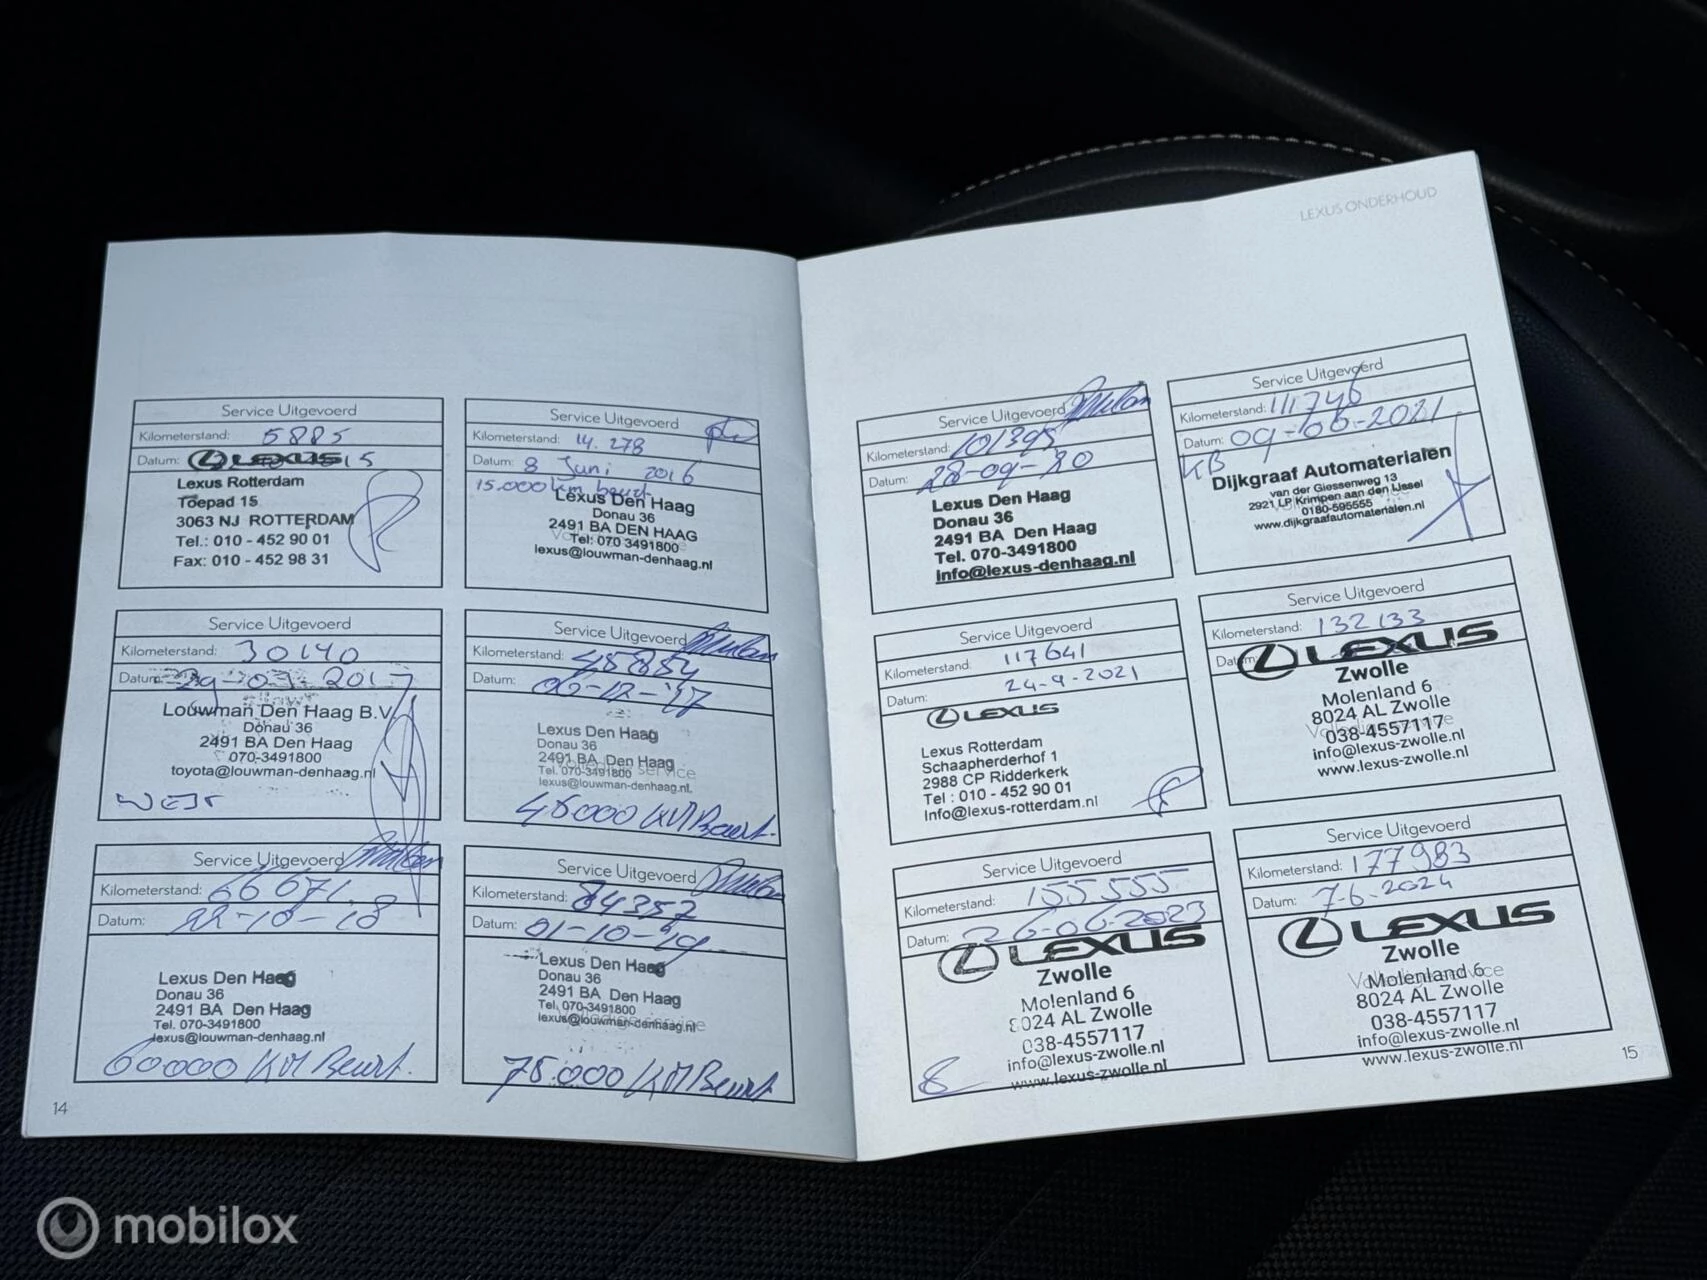 LEXUS ONDERHOUD
Service Uitgevoerd
Kilometerstand: 5885
Datum: 15
LEXUS
Lexus Rotterdam
Toepad 15
3063 NJ ROTTERDAM
Tel.: 010 - 452 90 01
Fax: 010 - 452 98 31
Service Uitgevoerd
Kilometerstand: 14.278
Datum: 8 Juni 2016
15.000 km beurt
Lexus Den Haag
Donau 36
2491 BA DEN HAAG
Tel: 070 3491800
lexus@louwman-denhaag.nl
Service Uitgevoerd
Kilometerstand: 30140
Datum: 2017
Louwman Den Haag B.V.
Donau 36
2491 BA Den Haag
070-3491800
toyota@louwman-denhaag.nl
Service Uitgevoerd
Kilometerstand: 45854
Datum: 06-12-'17
Lexus Den Haag
Donau 36
2491 BA Den Haag
Tel. 070-3491800
lexus@louwman-denhaag.nl
45000 KM Beurt.
Service Uitgevoerd
Kilometerstand: 66671
Datum: 22-10-18
Lexus Den Haag
Donau 36
2491 BA Den Haag
Tel. 070-3491800
lexus@louwman-denhaag.nl
60000 KM Beurt.
Service Uitgevoerd
Kilometerstand: 84357
Datum: 01-10-'19
Lexus Den Haag
Donau 36
2491 BA Den Haag
Tel. 070-3491800
lexus@louwman-denhaag.nl
75.000 KM Beurt
14
Service Uitgevoerd
Kilometerstand: 101395
Datum: 28-09-20
Lexus Den Haag
Donau 36
2491 BA Den Haag
Tel. 070-3491800
Info@lexus-denhaag.nl
Service Uitgevoerd
Kilometerstand: 111746
Datum: 09-06-2021
KB
Dijkgraaf Automaterialen
van der Giessenweg 13
2921 LP Krimpen aan den IJssel
0180-595555
www.dijkgraafautomaterialen.nl
Service Uitgevoerd
Kilometerstand: 117641
Datum: 24-9-2021
LEXUS
Lexus Rotterdam
Schaapherderhof 1
2988 CP Ridderkerk
Tel : 010 - 452 90 01
Info@lexus-rotterdam.nl
Service Uitgevoerd
Kilometerstand: 132133
Datum:
LEXUS
Zwolle
Molenland 6
8024 AL Zwolle
038-4557117
info@lexus-zwolle.nl
www.lexus-zwolle.nl
Service Uitgevoerd
Kilometerstand: 155555
Datum: 26-06-2023
LEXUS
Zwolle
Molenland 6
8024 AL Zwolle
038-4557117
info@lexus-zwolle.nl
www.lexus-zwolle.nl
Service Uitgevoerd
Kilometerstand: 177983
Datum: 7-6-2024
LEXUS
Zwolle
Molenland 6
8024 AL Zwolle
038-4557117
info@lexus-zwolle.nl
www.lexus-zwolle.nl
15
mobilox